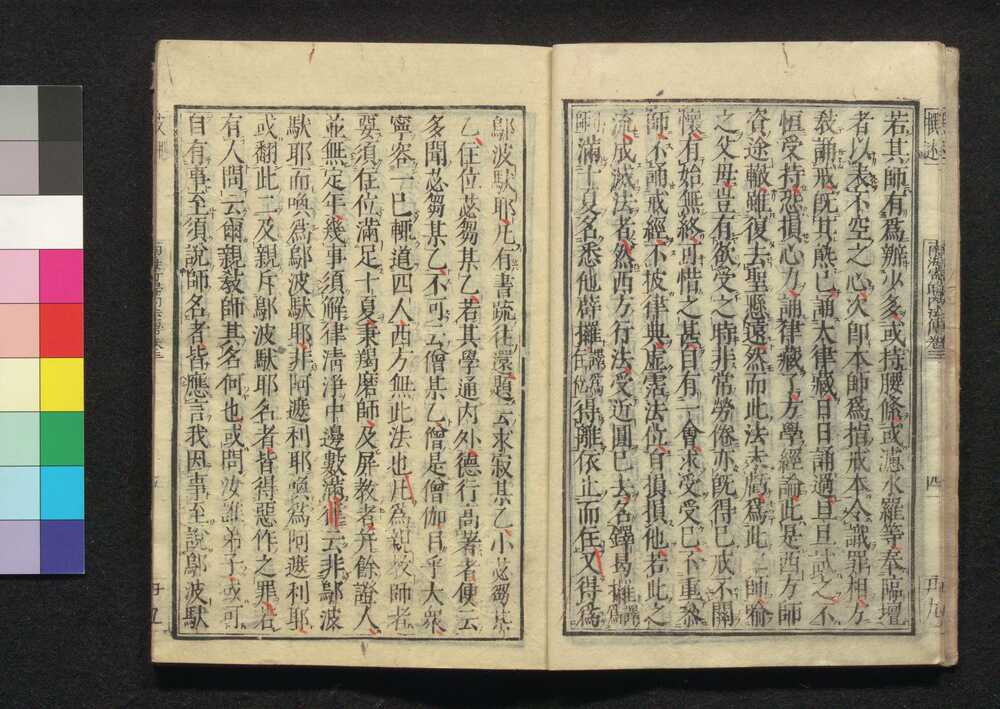 南海寄歸內法傳卷三　四
若其師有爲辨少多或持腰絛或濾水羅等奉臨壇
者以表不空之心次即本師爲指戒本令識罪相方
敎誦戒旣其熟已誦大律藏日日誦過旦旦試之不
恒受持恐損心力誦律藏了方學經論此是西方師
資途轍雖復去聖懸遠然而此法未虧爲此二師喩
之父母豈有欲受之時非常勞倦亦旣得已戒不關
懷有始無終可惜之甚自有一會求受受已不重叅
師不誦戒經不披律典虛霑法位自損損他若此之
流成滅法者然西方行法受近圓已去名鐸曷攞譯爲
小師滿十夏名悉他薜攞譯爲住位得離依止而住又得爲
鄔波馱耶凡有書疏往還題云求寂某乙小苾芻某
乙住位苾芻某乙若其學通内外德行高著者便云
多聞苾芻某乙不可云僧某乙僧是僧伽目乎大衆
寧容一己輒道四人西方無此法也凡爲親敎師者
要須住位滿足十夏秉羯磨師及屏教者幷餘證人
並無定年幾事須解律清淨中邊數滿律云非鄔波
馱耶而喚爲鄔波馱耶非阿遮利耶喚爲阿遮利耶
或翻此二及親斥鄔波馱耶名者皆得惡作之罪若
有人問云爾親敎師其名何也或問汝誰弟子或可
自有事至須說師名者皆應言我因事至說鄔波馱